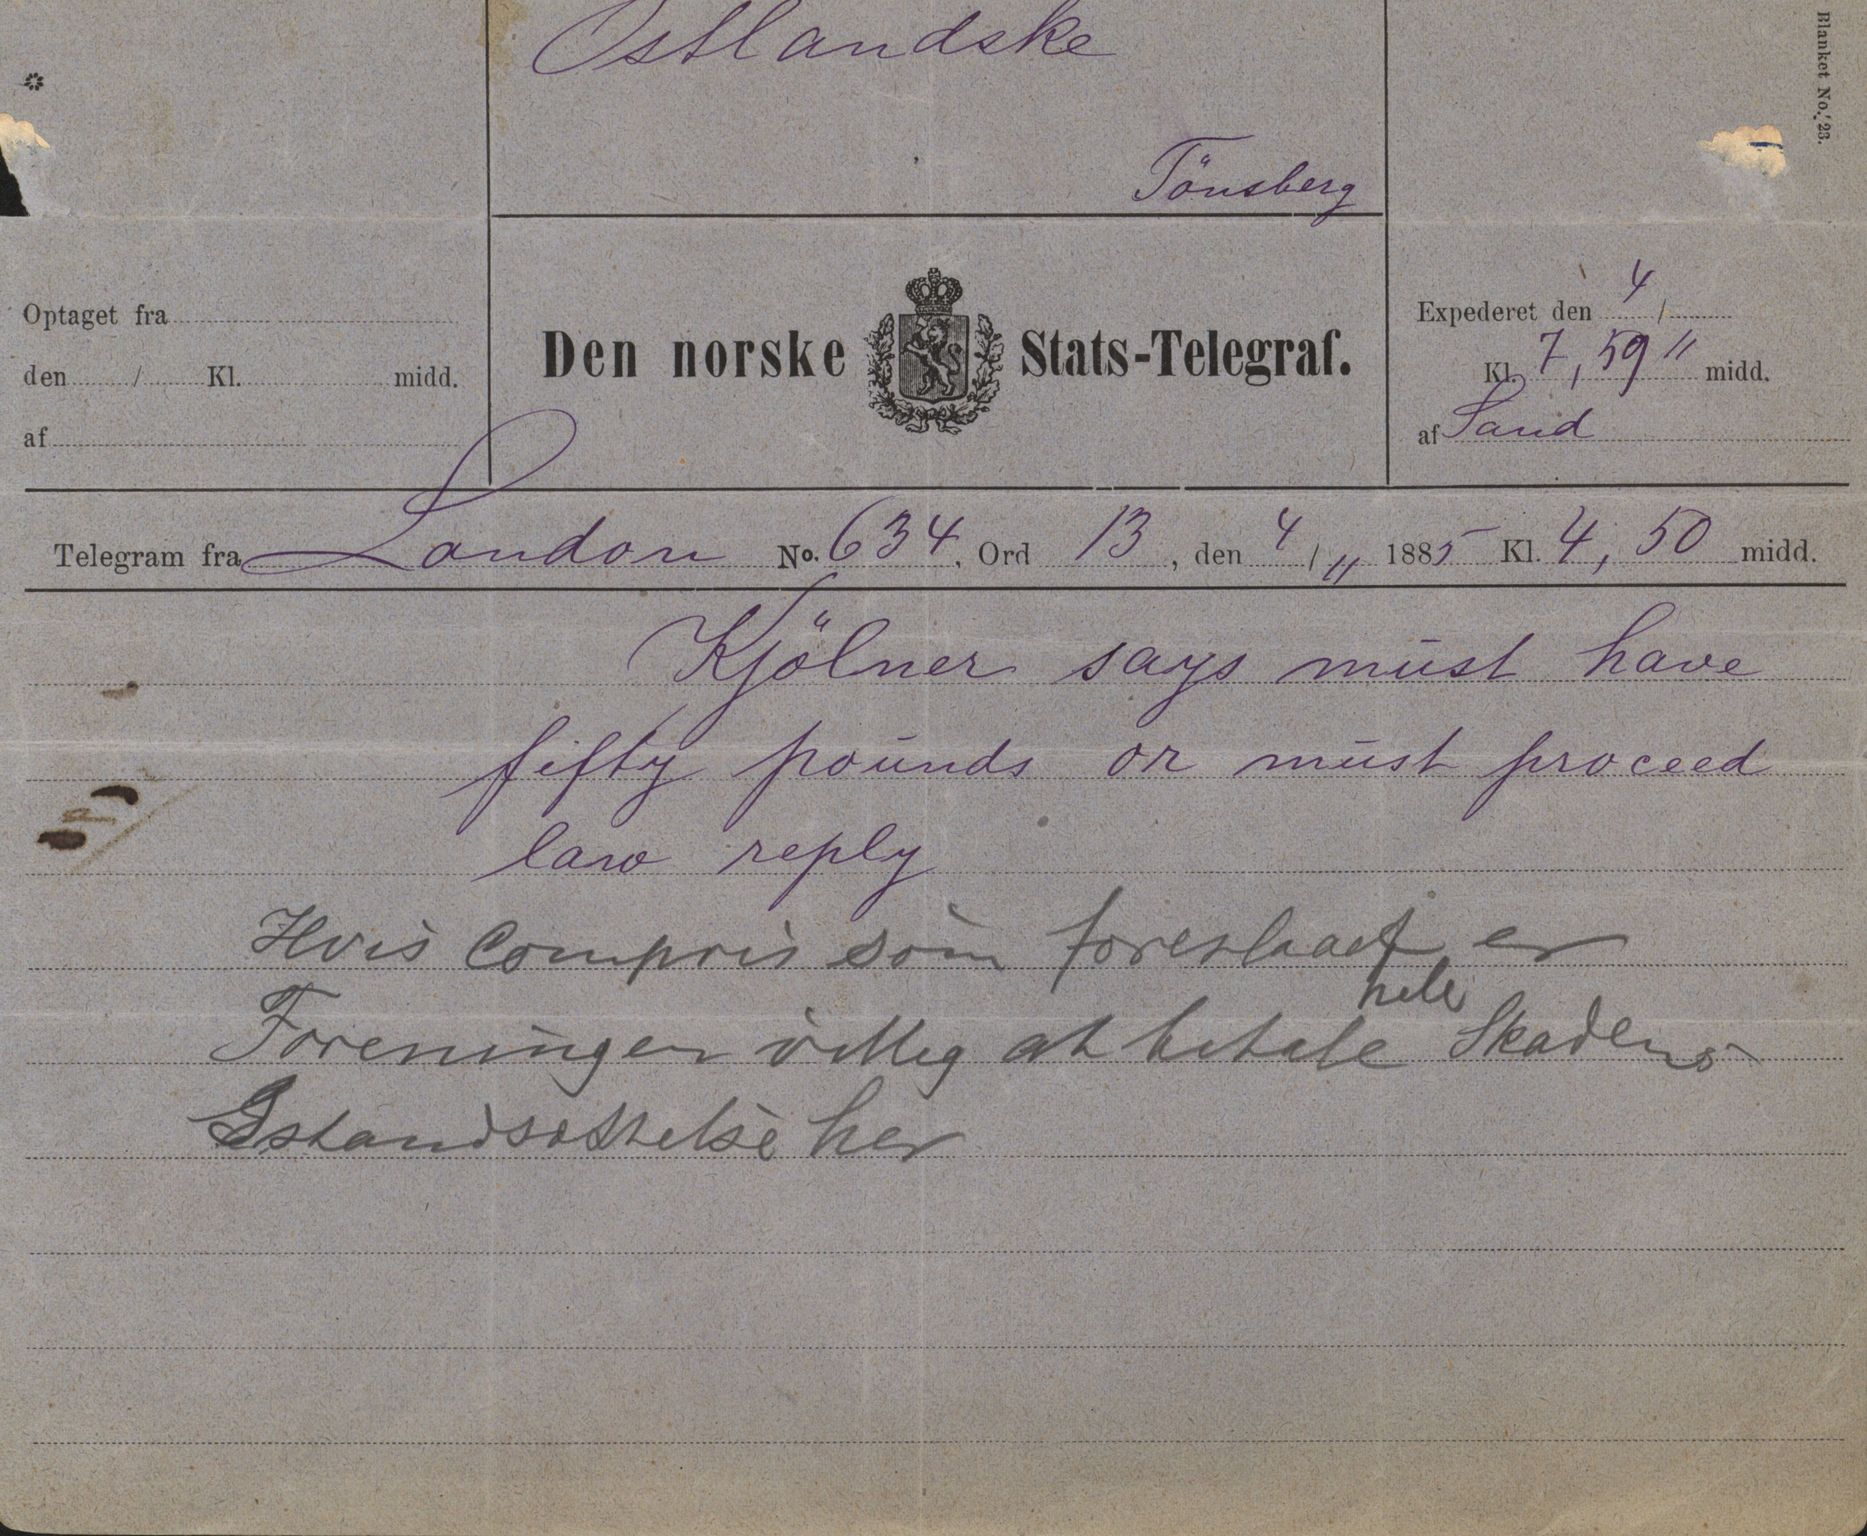 Ostlandske
Tönsberg
Blanket No. 23.
Optaget fra
den / Kl. midd.
af
Den norske Stats-Telegraf.
Expederet den 4 /
Kl. 7,59 " midd.
af Sand
Telegram fra London No. 634, Ord 13, den 4/11 1885 Kl. 4,50 midd.
Kjölner says must have
fifty pounds or must proceed
law reply
Hvis Compris som foreslaaet er
Foreningen villig at betale hele Skadens
Istandsættelse her